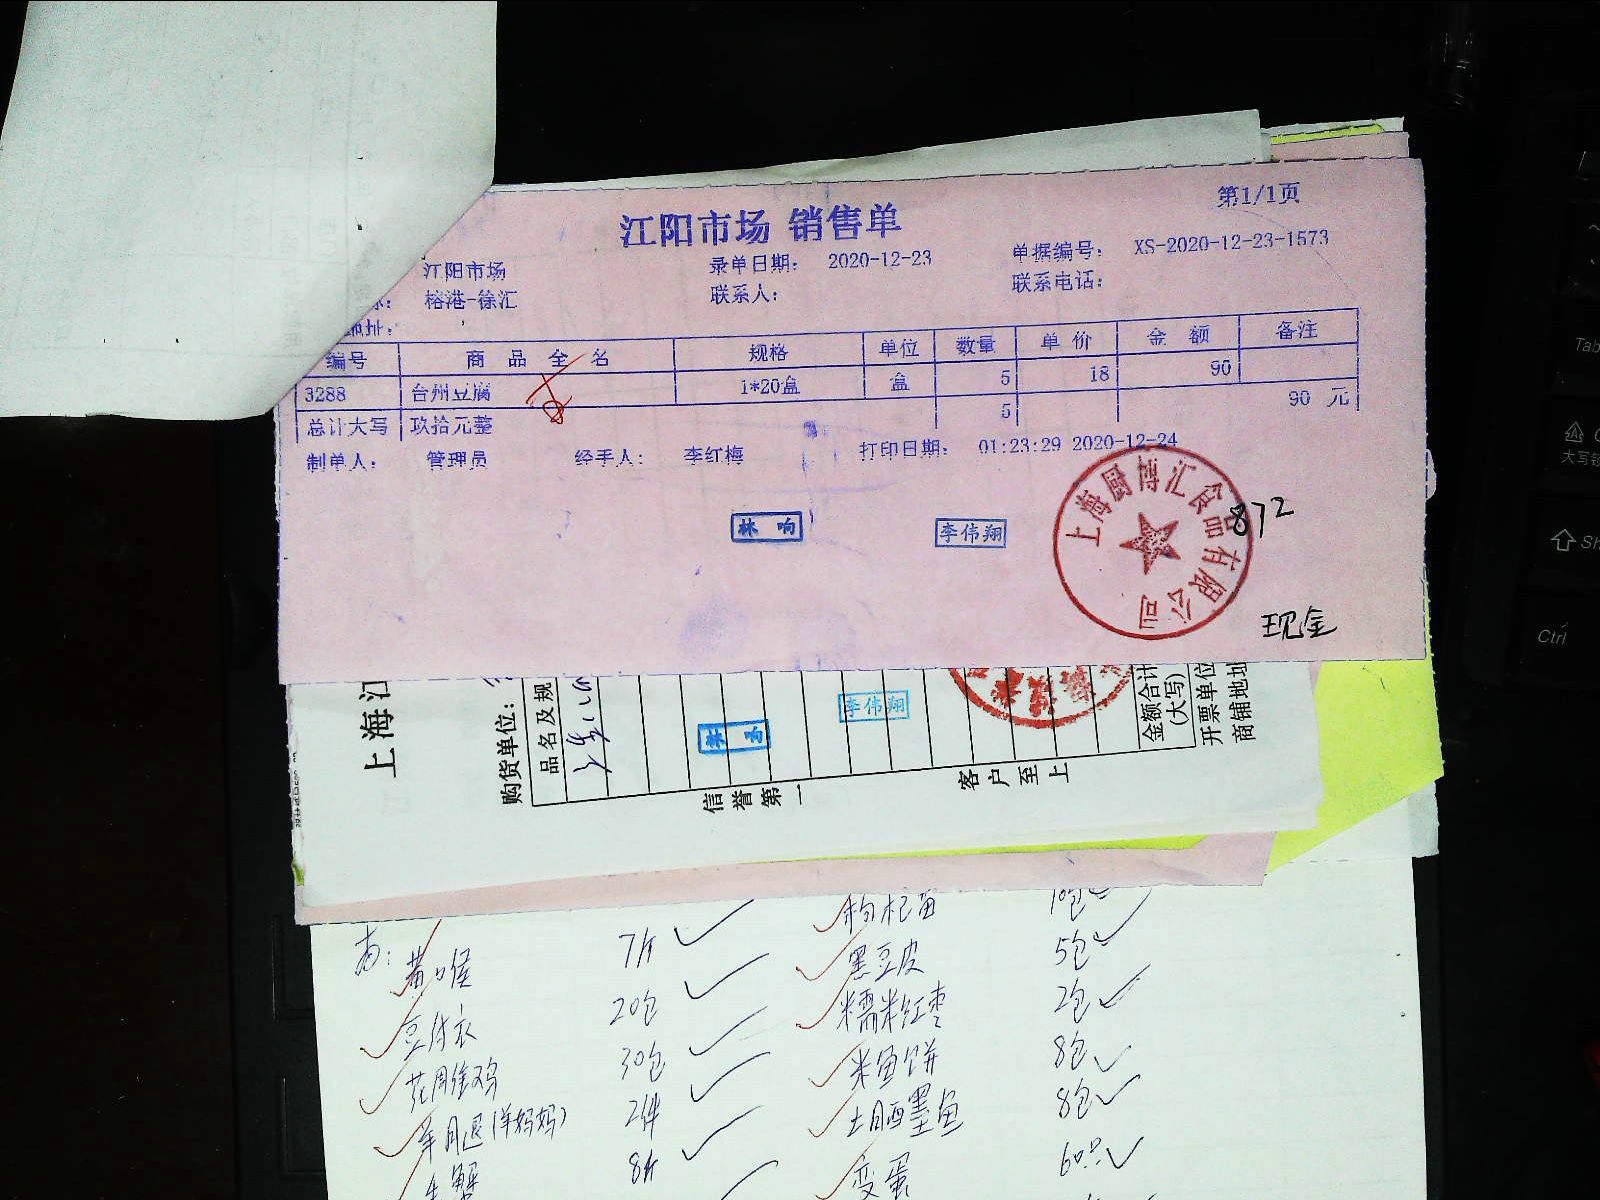 第1/1页
江阳市场 销售单
江阳市场 录单日期： 2020-12-23 单据编号： XS-2020-12-23-1573
榕港-徐汇 联系人： 联系电话：
地址：
编号 商品全名 规格 单位 数量 单价 金额 备注
3288 台州豆腐 1*20盒 盒 5 18 90
总计大写 玖拾元整 5 90 元
制单人： 管理员 经手人： 李红梅 打印日期： 01:23:29 2020-12-24
林响 李伟翔
上海厨博汇食品有限公司
872
现金
上海江
购货单位：
品名及规
李伟翔
金额合计
(大写)
开票单位
商铺地址
信誉第一 客户至上
黄口侯 7斤 枸杞苗 10包
豆付衣 20包 黑豆皮 5包
花雕鸡 30包 糯米红枣 2包
羊月退(洋妈妈) 2件 米鱼饼 8包
8斤 土目西墨鱼 8包
变蛋 60只
Tab
Ctrl